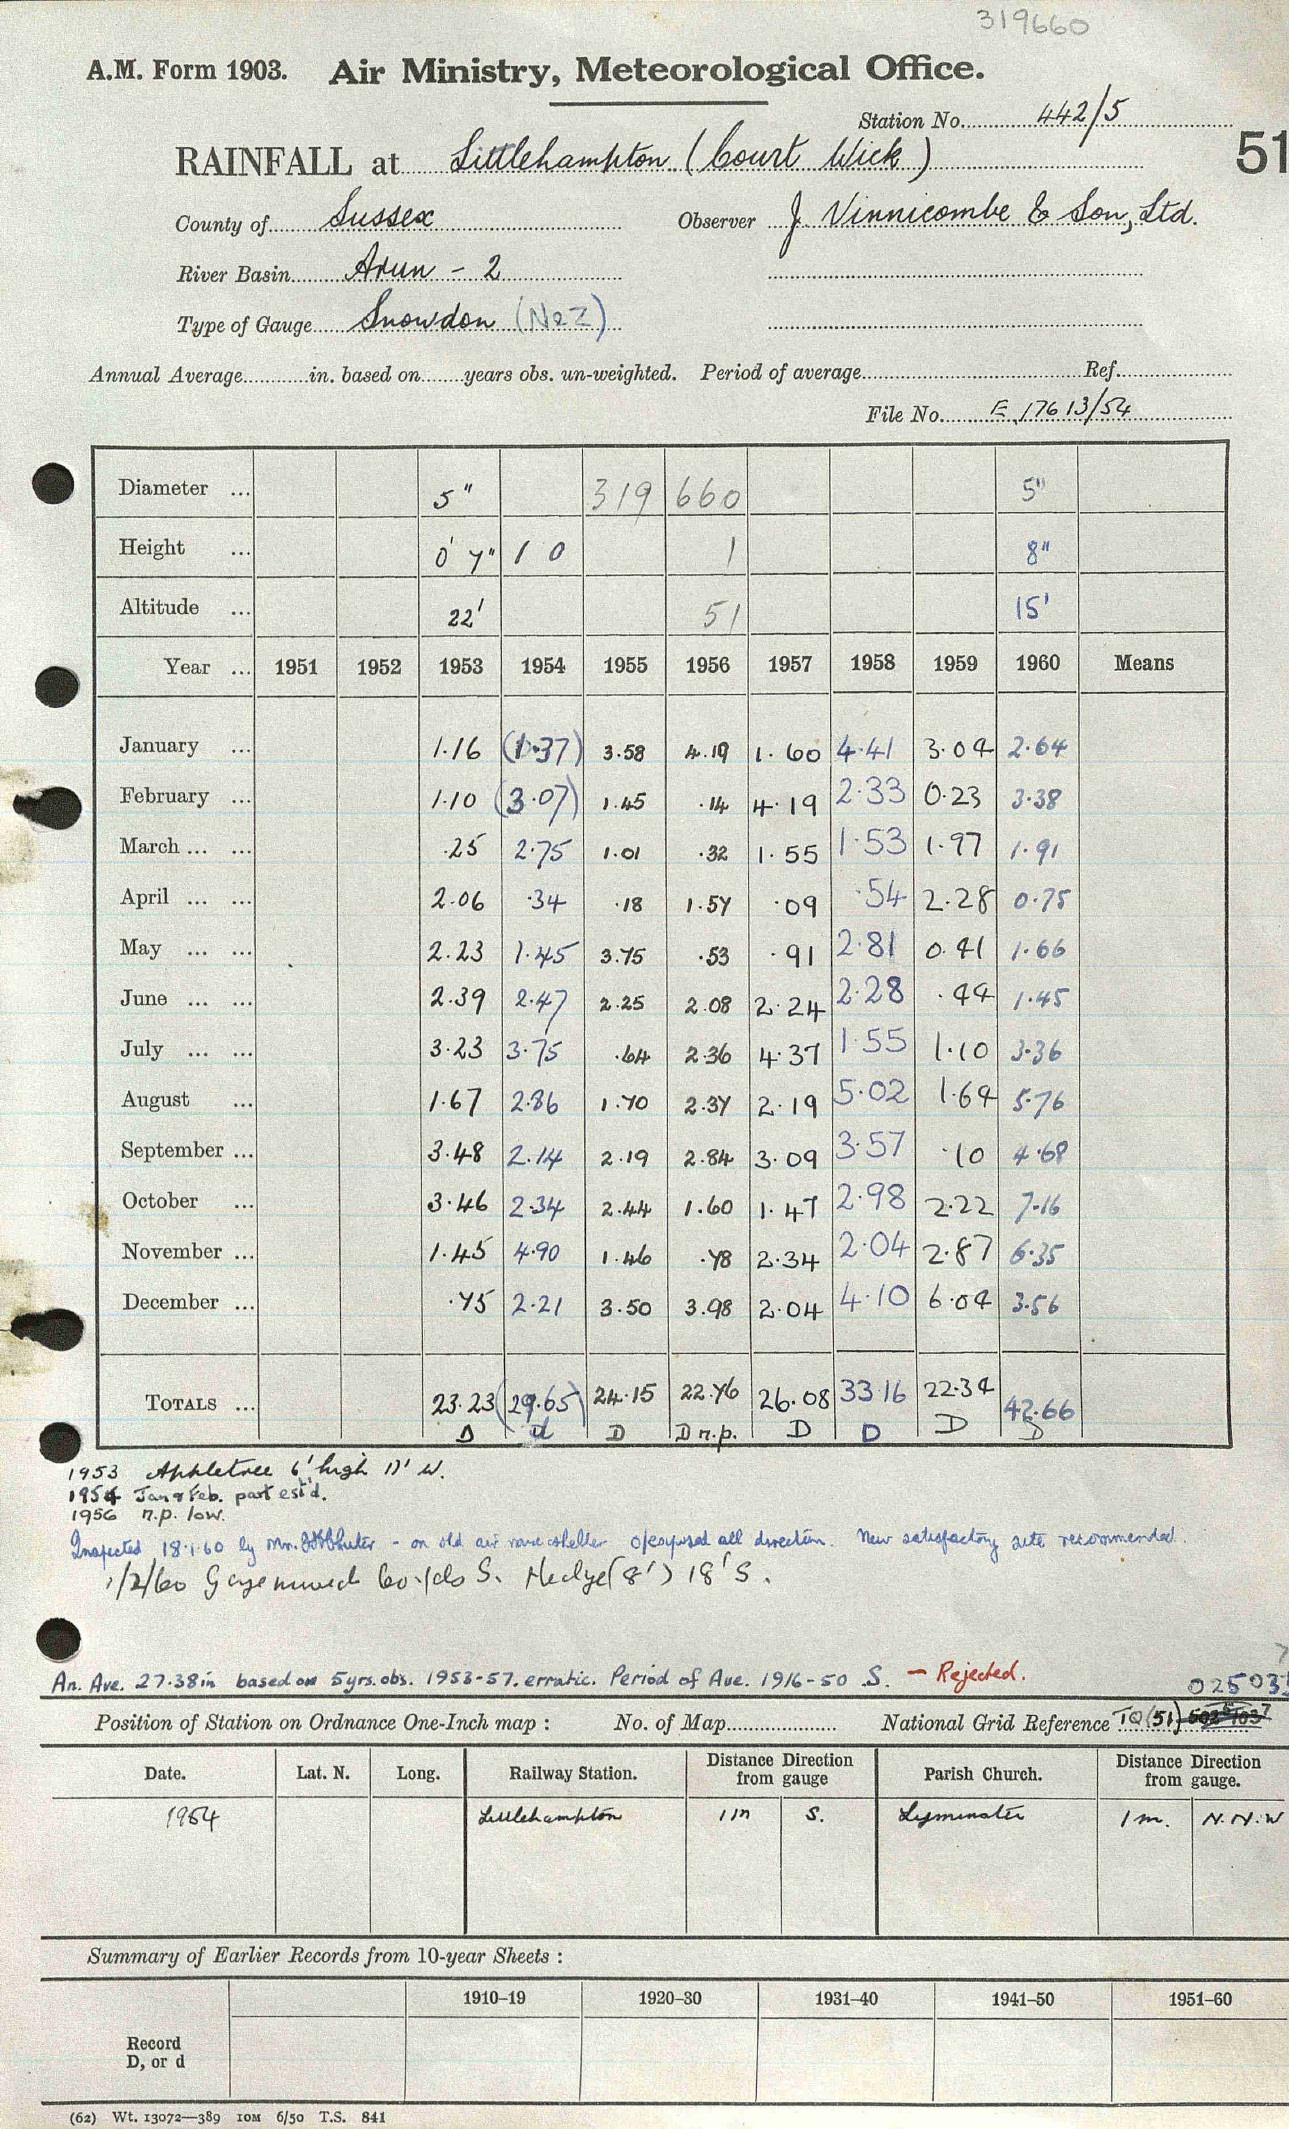 319660
A.M. Form 1903. Air Ministry, Meteorological Office.
Station No. 442/5
RAINFALL at Littlehampton (Court Wick) 51
County of Sussex Observer J. Vinnicombe & Son, Ltd.
River Basin Arun - 2
Type of Gauge Snowdon (N2Z)
Annual Average............in. based on........years obs. un-weighted. Period of average............ Ref............
File No. E 17613/54
Diameter ... 5" 319 660 5"
Height ... 0' 7" 1 0 1 8"
Altitude ... 22' 51 15'
Year ... 1951 1952 1953 1954 1955 1956 1957 1958 1959 1960 Means
January ... 1.16 (1.37) 3.58 4.19 1.60 4.41 3.04 2.64
February ... 1.10 (3.07) 1.45 .14 4.19 2.33 0.23 3.38
March ... ... .25 2.75 1.01 .32 1.55 1.53 1.97 1.91
April ... ... 2.06 .34 .18 1.57 .09 .54 2.28 0.75
May ... ... 2.23 1.45 3.75 .53 .91 2.81 0.41 1.66
June ... ... 2.39 2.47 2.25 2.08 2.24 2.28 .44 1.45
July ... ... 3.23 3.75 .64 2.36 4.37 1.55 1.10 3.36
August ... 1.67 2.86 1.70 2.37 2.19 5.02 1.64 5.76
September ... 3.48 2.14 2.19 2.84 3.09 3.57 .10 4.68
October ... 3.46 2.34 2.44 1.60 1.47 2.98 2.22 7.16
November ... 1.45 4.90 1.46 .78 2.34 2.04 2.87 6.35
December ... .75 2.21 3.50 3.98 2.04 4.10 6.04 3.56
TOTALS ... 23.23 (29.65) 24.15 22.46 26.08 33.16 22.34 42.66
D d D D n.p. D D D D
1953 Appletree 6' high 11' W.
1954 Jan & Feb. part est'd.
1956 n.p. low.
Inspected 18.1.60 by Mr. - on old air raid shelter o/exposed all direction. New satisfactory site recommended.
1/2/60 Gauge moved 60 yds S. Hedge (8') 18' S.
An. Ave. 27.38 in based on 5 yrs. obs. 1953-57. erratic. Period of Ave. 1916-50 S. - Rejected.
Position of Station on Ordnance One-Inch map : No. of Map............ National Grid Reference TQ (51)
Date. Lat. N. Long. Railway Station. Distance Direction from gauge Parish Church. Distance Direction from gauge.
1954 Littlehampton 1 m S. Lyminster 1 m. N.N.W
Summary of Earlier Records from 10-year Sheets :
1910–19 1920–30 1931–40 1941–50 1951–60
Record
D, or d
(62) Wt. 13072—389 10M 6/50 T.S. 841